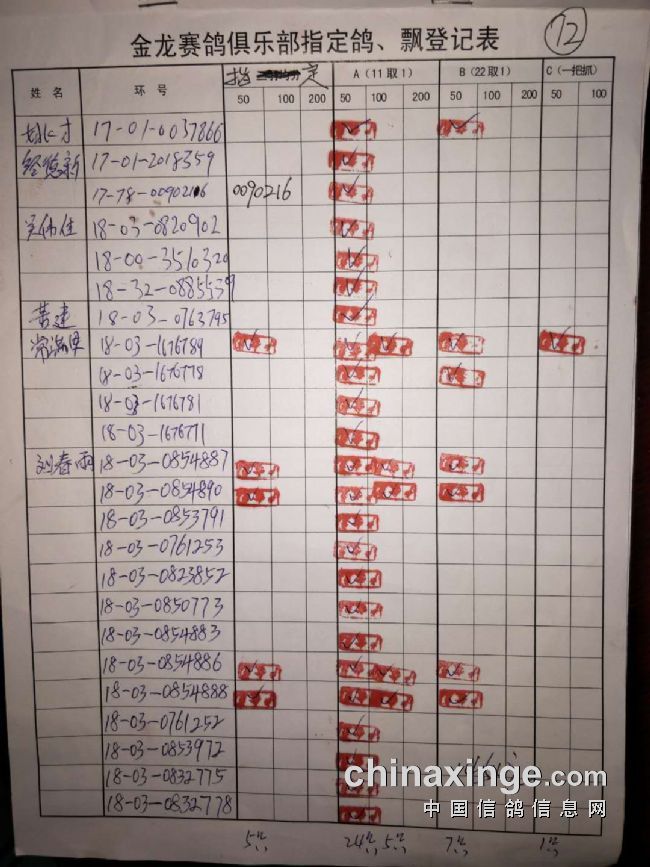 12
金龙赛鸽俱乐部指定鸽、飘登记表
姓名 环号 指定 A（11取1） B（22取1） C（一把抓）
50 100 200 50 100 200 50 100 200 50 100
17-01-0037866
17-01-2018359
17-78-0090216 0090216
18-03-0820902
18-00-3510320
18-32-0885539
黄建 18-03-0763795
18-03-1676789
18-03-1676778
18-03-1676781
18-03-1676771
刘春雨 18-03-0854887
18-03-0854890
18-03-0853791
18-03-0761253
18-03-0823852
18-03-0850773
18-03-0854883
18-03-0854886
18-03-0854888
18-03-0761252
18-03-0853972
18-03-0832775
18-03-0832778
5只 24只 5只 7只 1只
chinaxinge.com
中国信鸽信息网